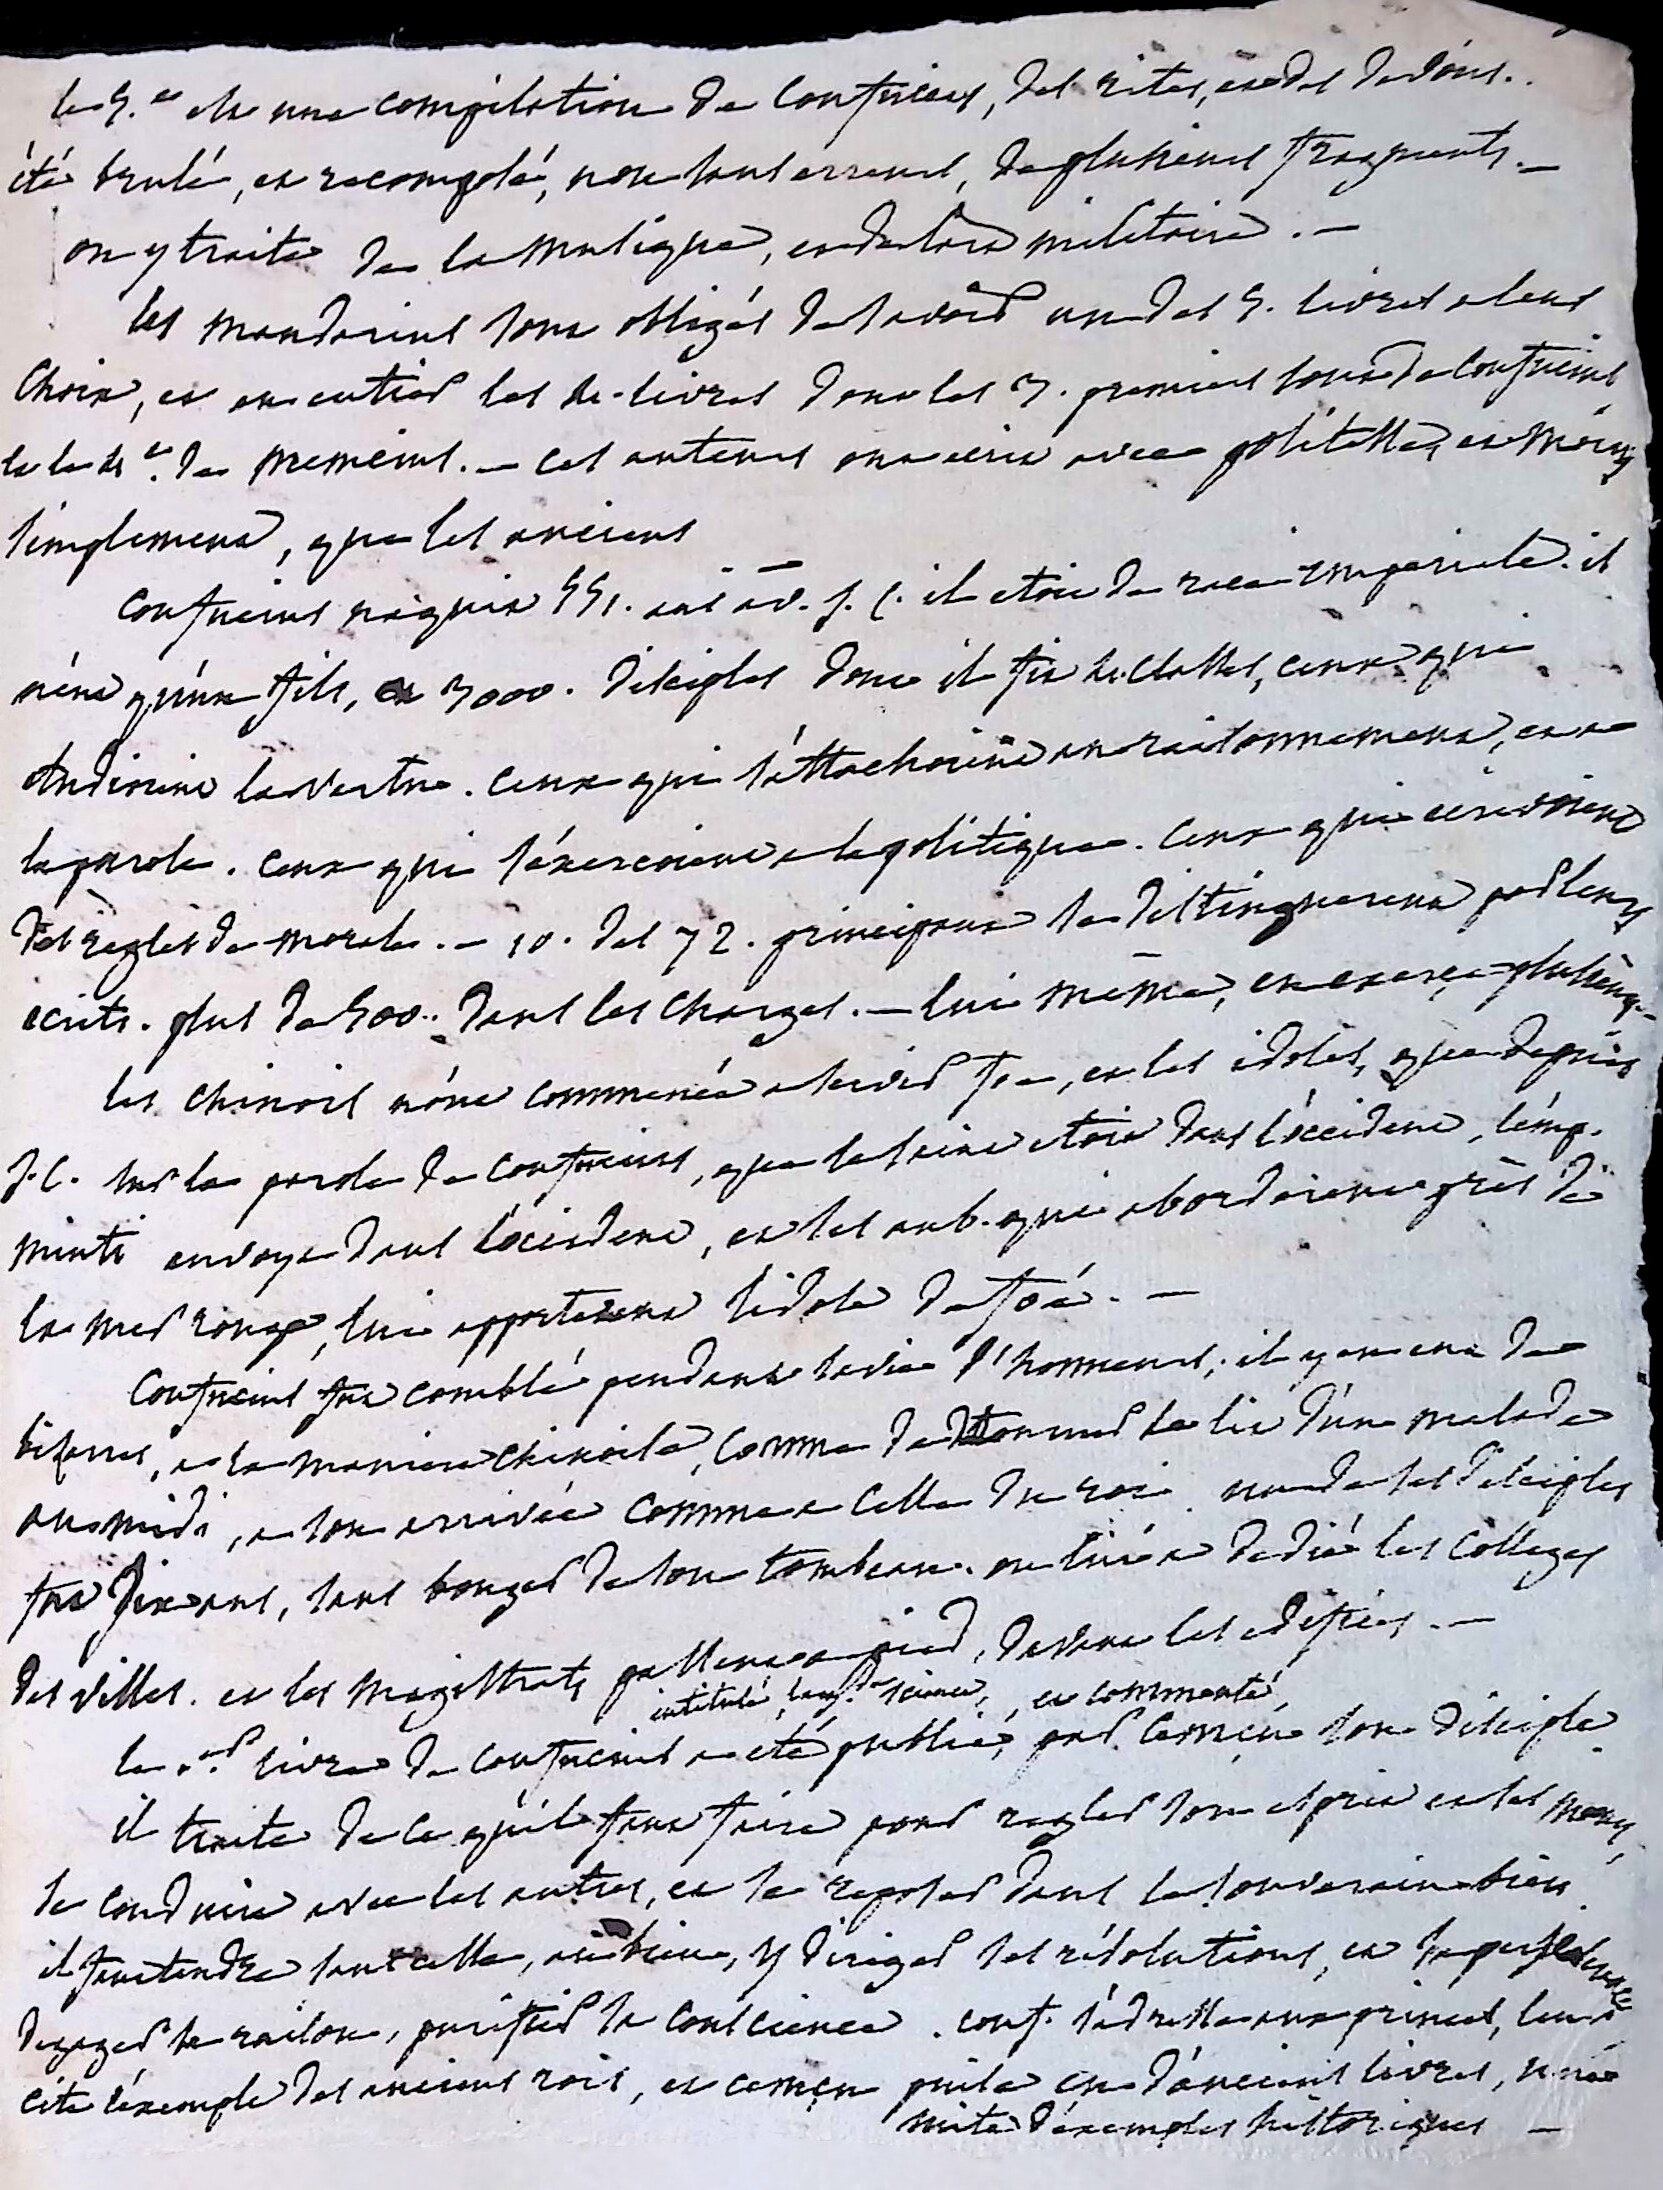 le 5.e est une compilation de Confucius, des rites, et des devoirs.
été brulé, et recomposé, non sans erreurs, de plusieurs fragments. —
on y traite de la musique, et de l'art militaire. —
les mandarins sont obligés de savoir un des 5. livres a leur
choix, et en entier les 4. livres dont les 3. premiers sont de Confucius
le 4e. de Memcius. — ces auteurs ont écrit avec politesse, et moins
simplement, que les anciens
Confucius naquit 551. ans av. J. C. il etoit de race imperiale. il
n'eut qu'un fils, et 3000. disciples dont il fit 4. classes, ceux qui
etudioient la vertu. ceux qui s'attachoient au raisonnement, et a
la parole. ceux qui s'exercoient a la politique. ceux qui ecrivoient
des regles de morale. — 10. des 72. principaux se distinguerent par leurs
ecrits. plus de 500. dans les charges. — lui même, en exerça plusieurs.
les chinois n'ont commencé a servir foe, et les idoles, que depuis
J. C. sur la parole de Confucius, que le saint etoit dans l'occident, l'emp.
Minti envoya dans l'occident, et les amb. qui aborderent près de
la mer rouge, lui apporterent l'idole de foé. —
Confucius fut comblé pendant sa vie d'honneurs; il y en eut de
bisarres, a la maniere chinoise, comme de tourner le lit d'un malade
au midi, a son arrivée comme a celle du roi. un de ses disciples
fut six ans, sans bouger de son tombeau. on lui a dedié les colleges
des villes. et les magistrats passent a pied, devant les edifices. —
intitulé, la grde. science, et commenté,
le 1er livre de Confucius a été publié, par Cemçu son disciple.
il traite de ce qu'il faut faire pour regler son esprit et ses moeurs,
se conduire avec les autres, et se reposer dans le souverain bien
il faut tendre sans cesse, au bien, y diriger ses résolutions, et sa persévérance
degager sa raison, purifier sa conscience. conf. s'adresse aux princes, leur
cite l'exemple des anciens rois, et cemçu puise en d'anciens livres, une
suite d'exemples historiques —